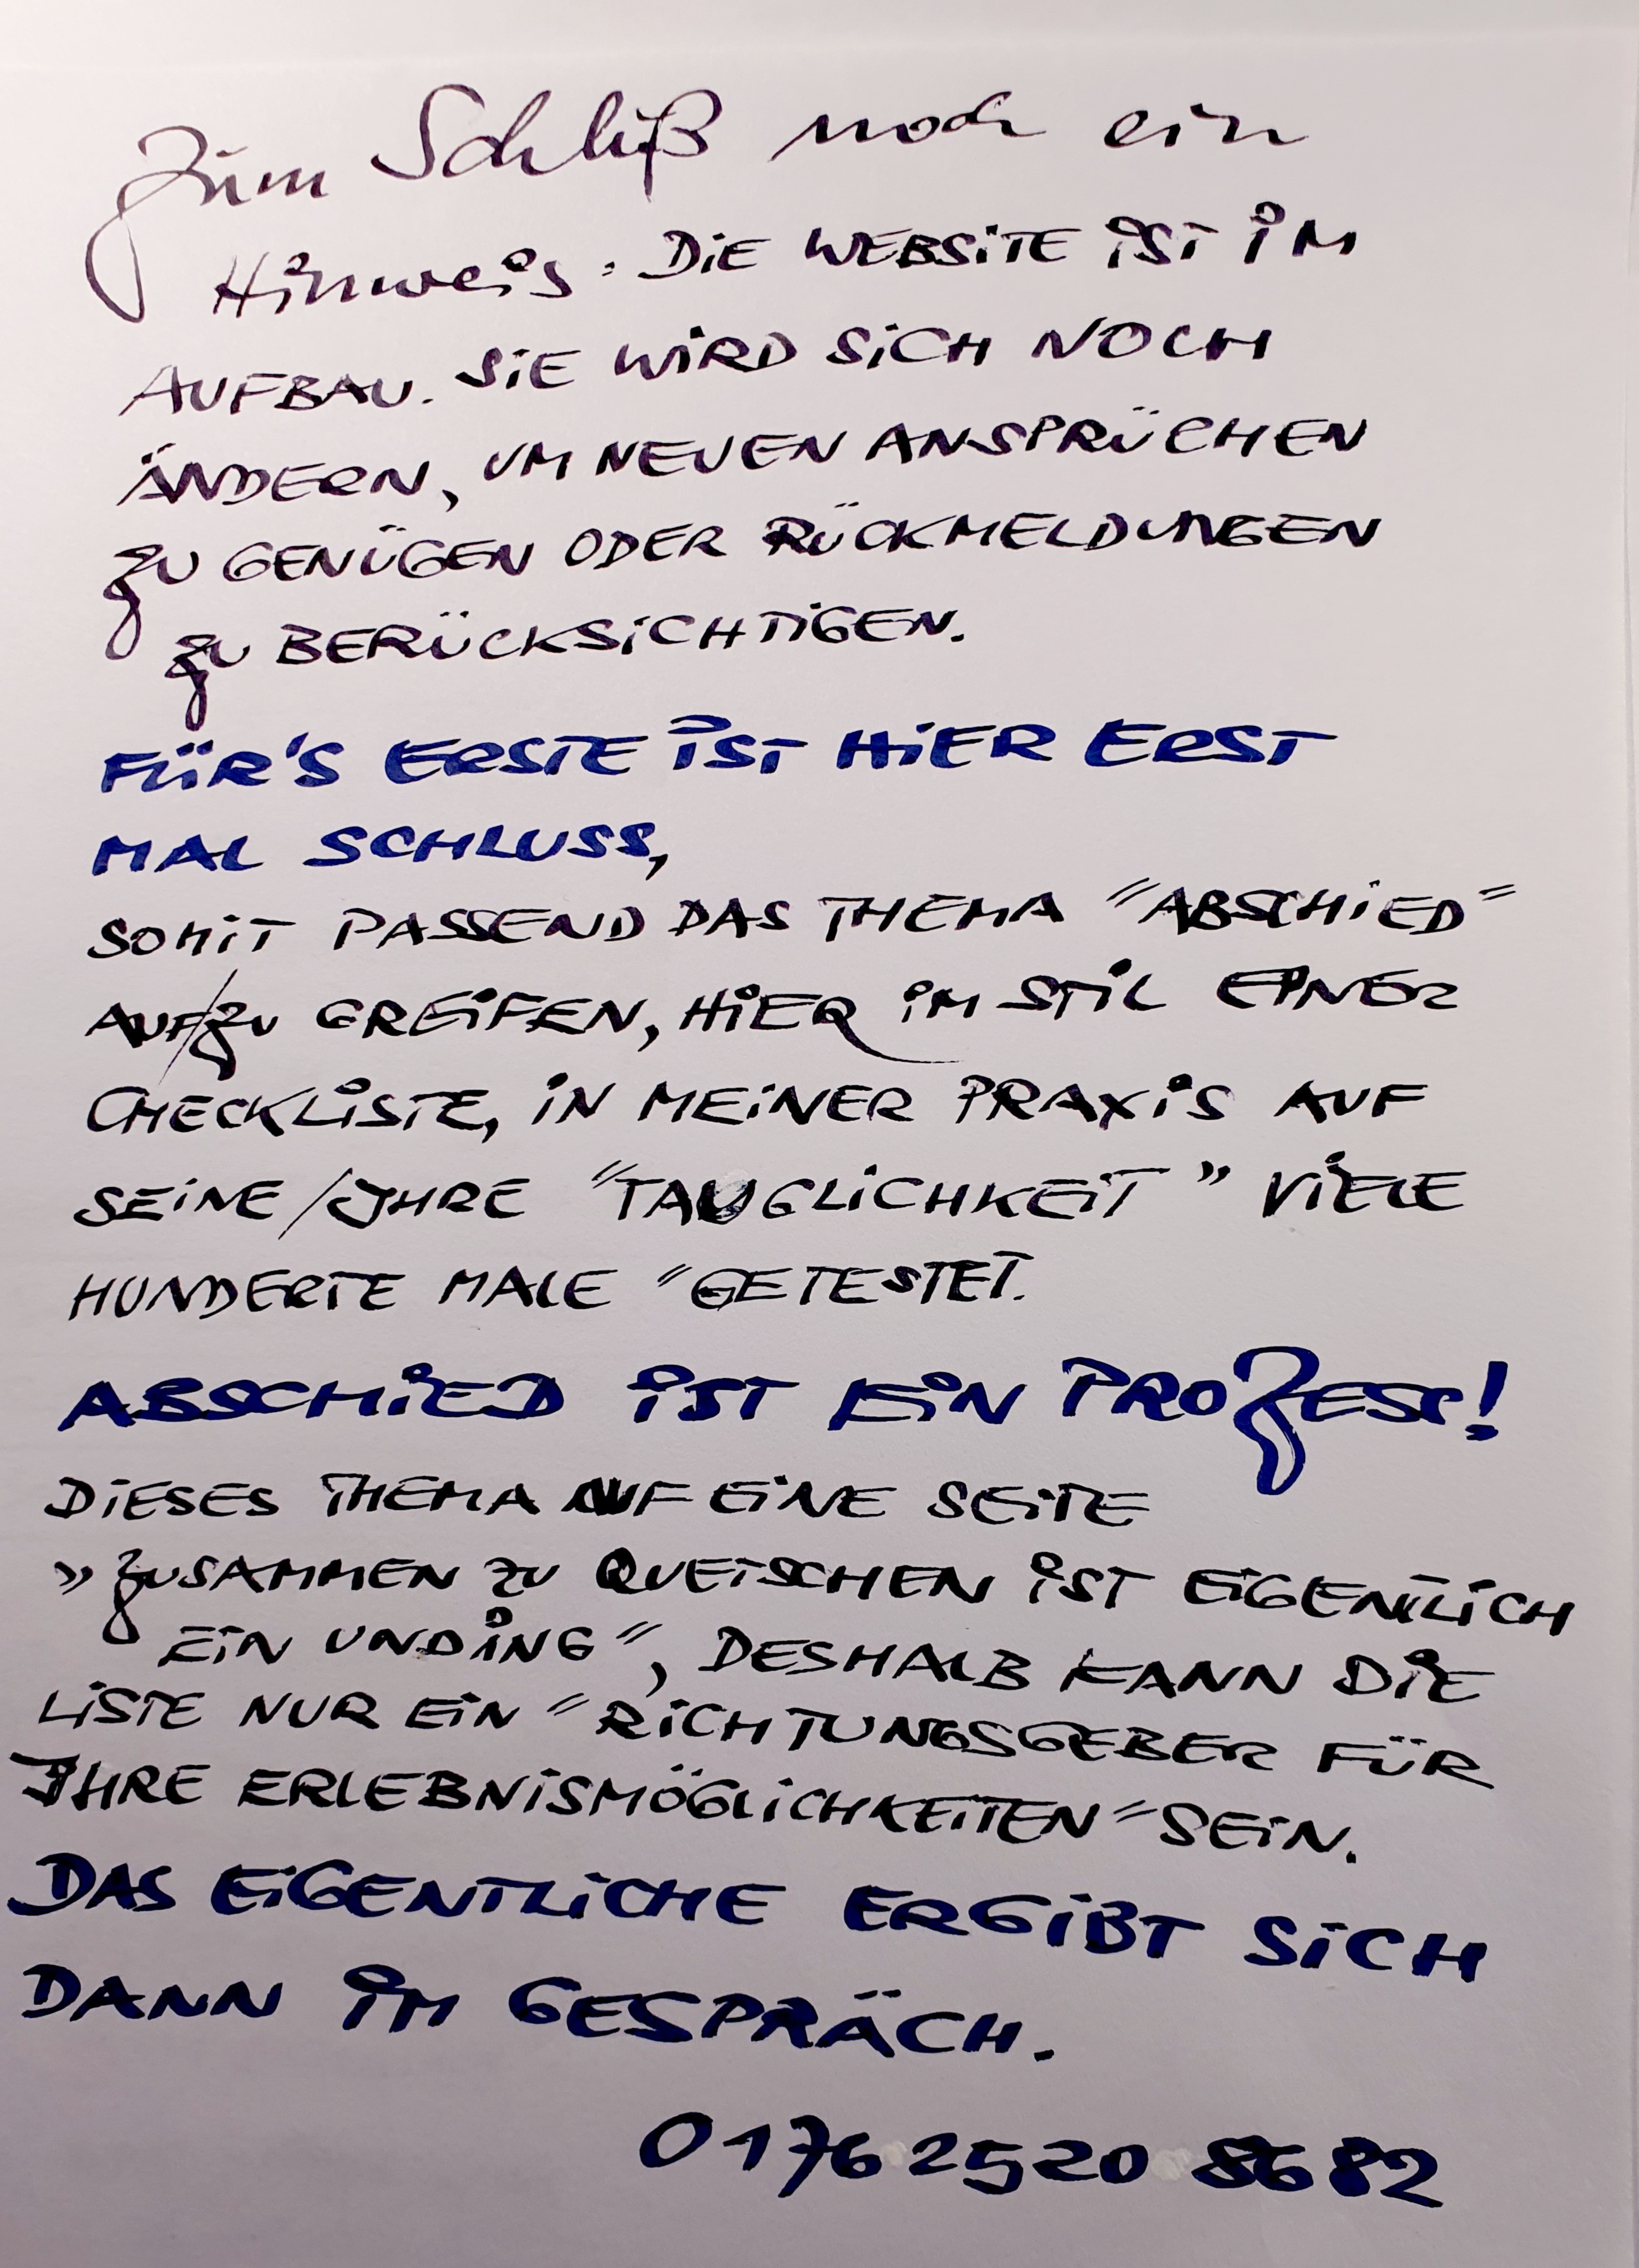 Zum Schluß noch ein
Hinweis: DIE WEBSITE IST IM
AUFBAU. SIE WIRD SICH NOCH
ÄNDERN, UM NEUEN ANSPRÜCHEN
ZU GENÜGEN ODER RÜCKMELDUNGEN
ZU BERÜCKSICHTIGEN.
FÜR'S ERSTE IST HIER ERST
MAL SCHLUSS,
SOMIT PASSEND DAS THEMA "ABSCHIED"
AUF/ZU GREIFEN, HIER IM STIL EINER
CHECKLISTE, IN MEINER PRAXIS AUF
SEINE/IHRE "TAUGLICHKEIT" VIELE
HUNDERTE MALE "GETESTET.
ABSCHIED IST EIN PROZESS!
DIESES THEMA AUF EINE SEITE
"ZUSAMMEN ZU QUETSCHEN IST EIGENTLICH
EIN UNDING", DESHALB KANN DIE
LISTE NUR EIN "RICHTUNGSGEBER FÜR
IHRE ERLEBNISMÖGLICHKEITEN" SEIN.
DAS EIGENTLICHE ERGIBT SICH
DANN IM GESPRÄCH.
0176 2520 8682